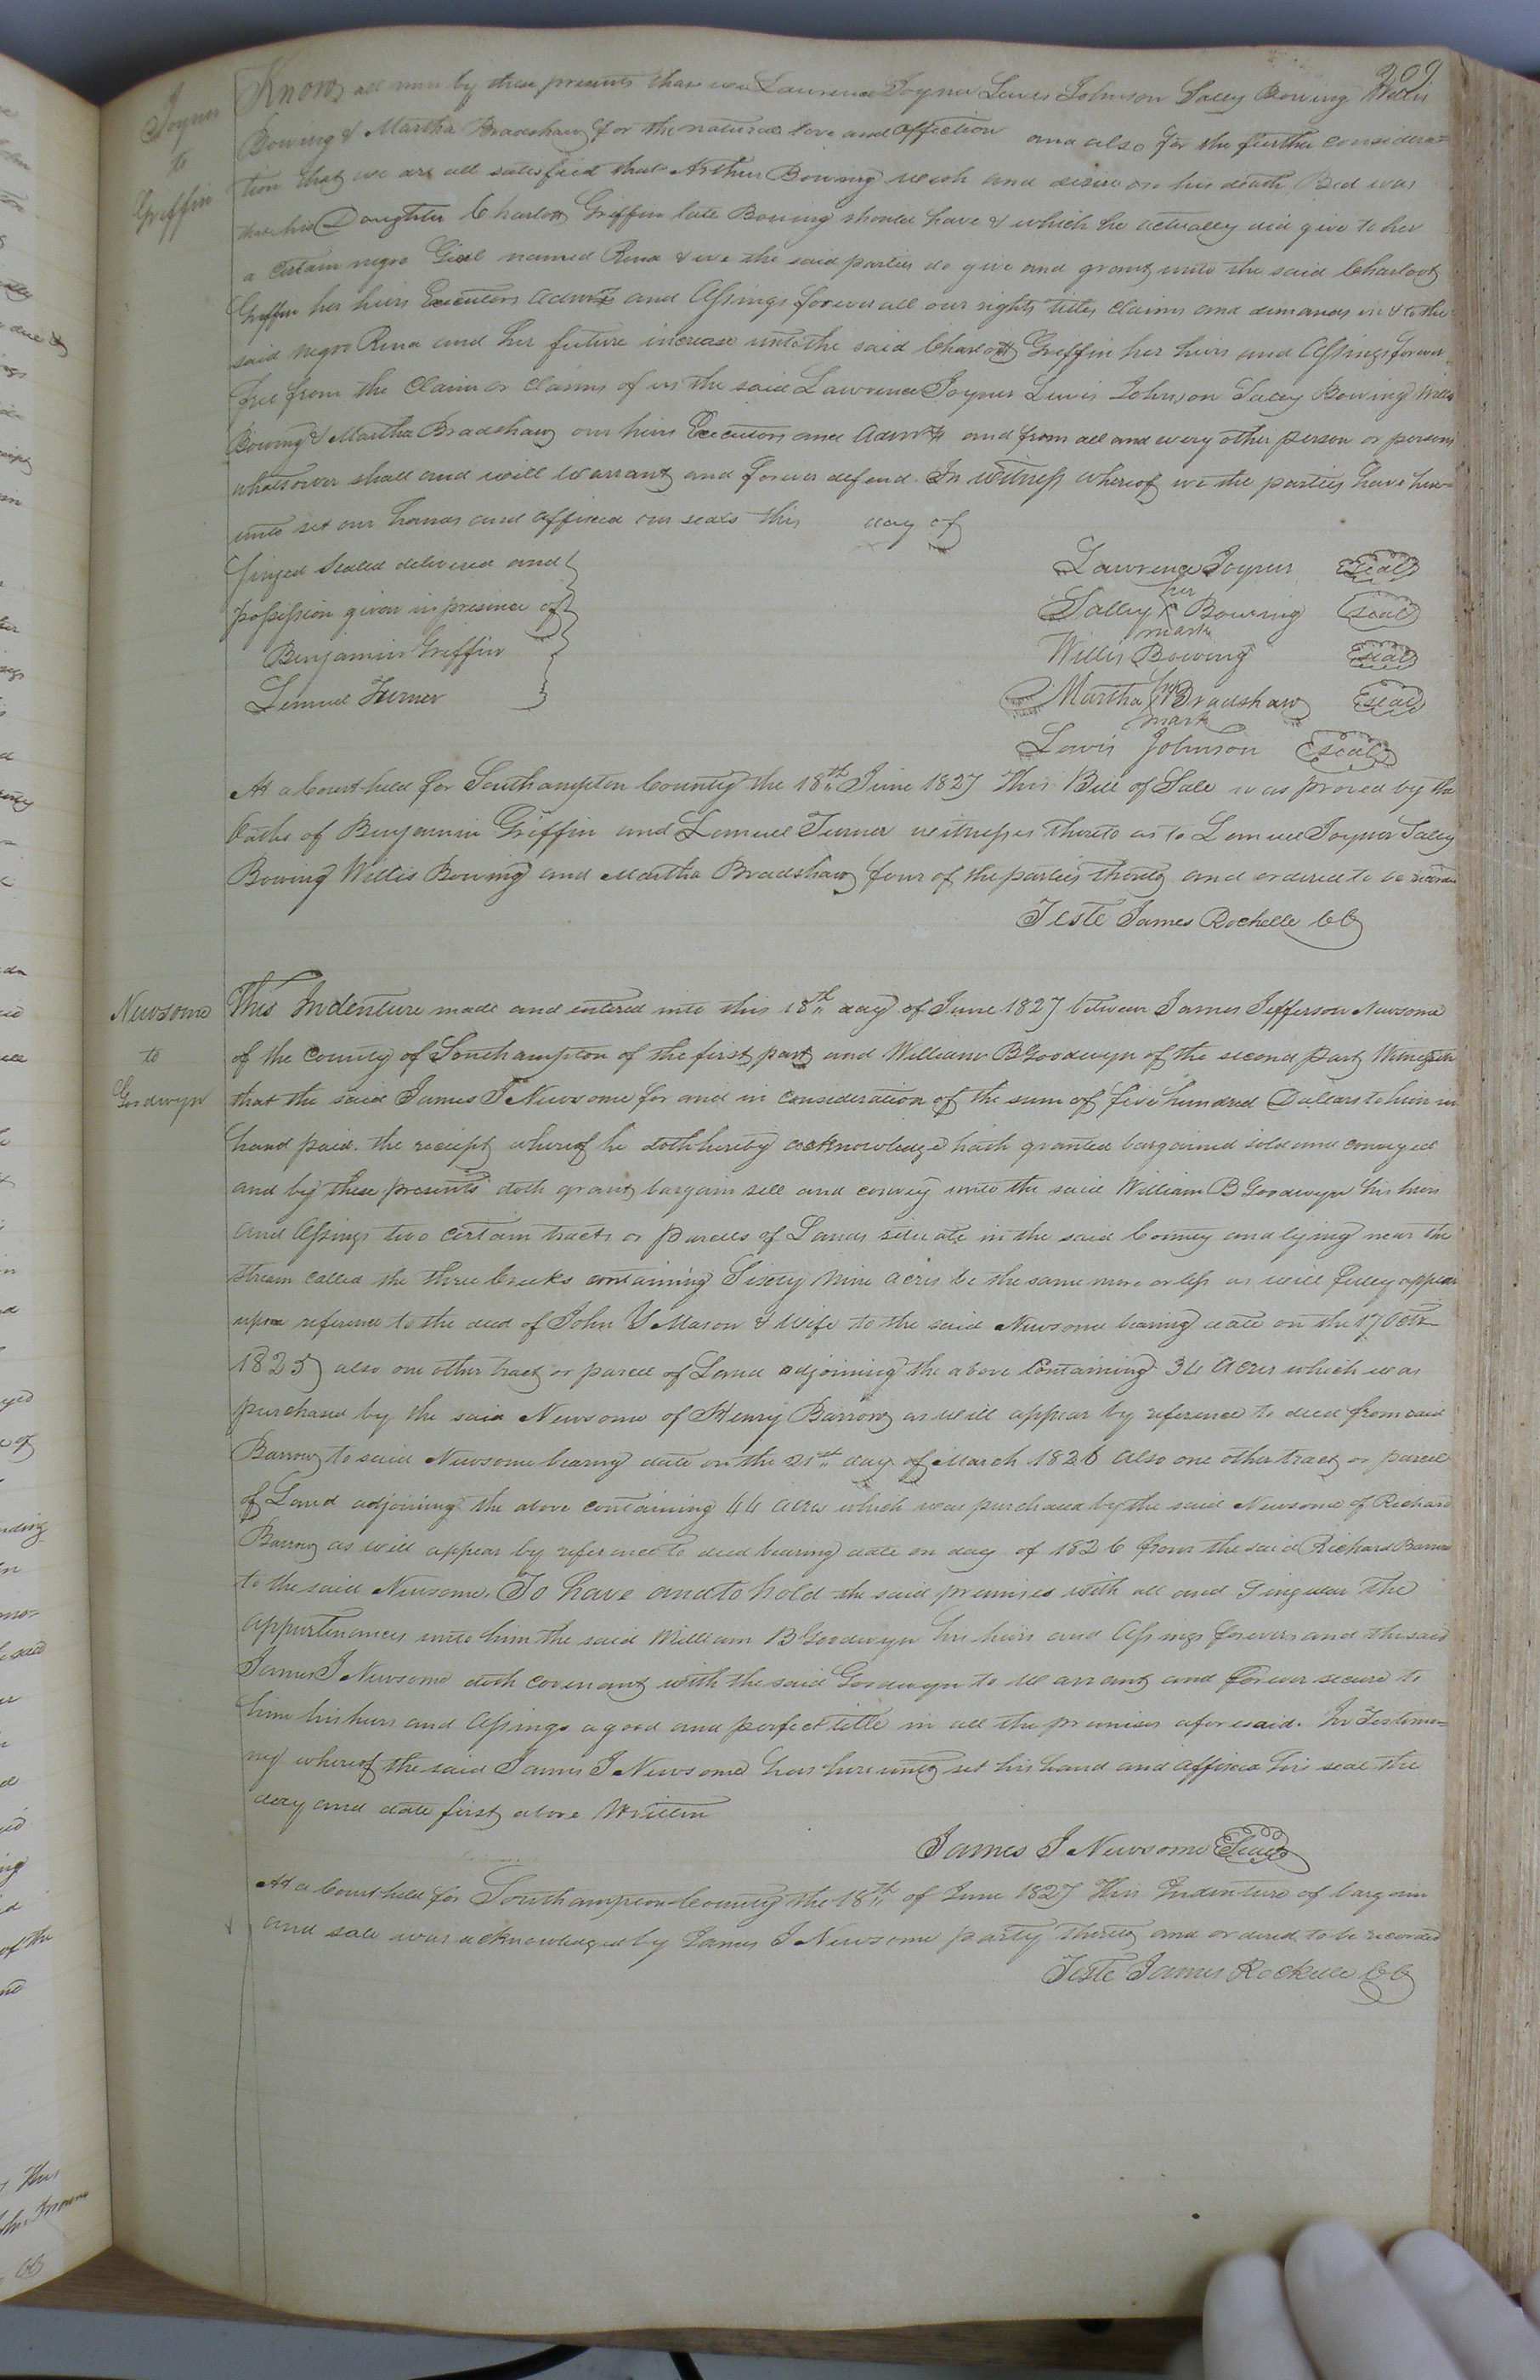 209
Joyner
to
Griffin
Know all men by these presents that we Lawrence Joyner Lewis Johnson Salley Bowing Willis
Bowing & Martha Bradshaw for the natural love and affection and also for the further considera=
tion that we are all satisfied that Arthur Bowing wish and desire on his death Bed was
that his Daughter Charlott Griffin late Bowing should have & which he actually did give to her
a certain negro Girl named Rina & we the said parties do give and grant unto the said Charloot
Griffin her heirs Executors admrs and Assings forever all our rights titles claims and demands in & to the
said negro Rina and her future increase unto the said Charlott Griffin her heirs and Assings forever
free from the Claim or claims of us the said Lawrence Joyner Lewis Johnson Salley Bowing Willis
Bowing & Martha Bradshaw our heirs Executors and Admrs and from all and every other person or persons
whatsoever shall and will warrant and forever defend. In witness whereof we the parties have here=
unto set our hands and affixed our seals this day of
Singed Sealed delivered and
possession given in presence of
Benjamin Griffin
Lemuel Turner
Lawrence Joyner Seal
Salley her mark Bowing Seal
Willis Bowing Seal
Martha her mark Bradshaw Seal
Lewis Johnson Seal
At a Court held for Southampton County the 18th June 1827 This Bill of Sale was proved by the
Oaths of Benjamin Griffin and Lemuel Turner witnesses thereto as to Lemuel Joyner Salley
Bowing Willis Bowing and Martha Bradshaw four of the parties thereto and ordered to be recorded
Teste James Rochelle CC
Newsome
to
Goodwyn
This Indenture made and entered into this 18th day of June 1827 between James Jefferson Newsome
of the County of Southampton of the first part and William B Goodwyn of the second part Witnesseth
that the said James J Newsome for and in consideration of the sum of five hundred Dollars to him in
hand paid. the receipt whereof he doth hereby acknowledge hath granted bargained sold and conveyed
and by these presents doth grant bargain sell and convey unto the said William B Goodwyn his heirs
and Assings two certain tracts or parcels of Land situate in the said County and lying near the
stream called the three Creeks containing Sixty Nine acres be the same more or less as will fulley appear
upon reference to the deed of John Y Mason & Wife to the said Newsome bearing date on the 17 Octr
1825 also one other tract or parcel of Land adjoining the above Containing 34 Acres which was
purchased by the said Newsome of Henry Barrow as will appear by reference to deed from said
Barrow to said Newsome bearing date on the 21st day of March 1826 also one other tract or parcel
of Land adjoining the above containing 44 acres which was purchased by the said Newsome of Richard
Barrow as will appear by reference to deed bearing date on day of 1826 from the said Richard Barrow
to the said Newsome. To have and to hold the said premises with all and Singular the
appurtenances unto him the said William B Goodwyn his heirs and Assings forever and the said
James J Newsome doth covenant with the said Goodwyn to warrant and forever secure to
him his heirs and Assings a good and perfect title in all the premises aforesaid. In Testimo=
ny whereof the said James J Newsome has hereunto set his hand and affixed his seal the
day and date first above Written
James J Newsome Seal
At a Court held for Southampton County the 18th of June 1827 This Indenture of bargain
and sale was acknowledged by James J Newsome party thereto and ordered to be recorded
Teste James Rochelle CC